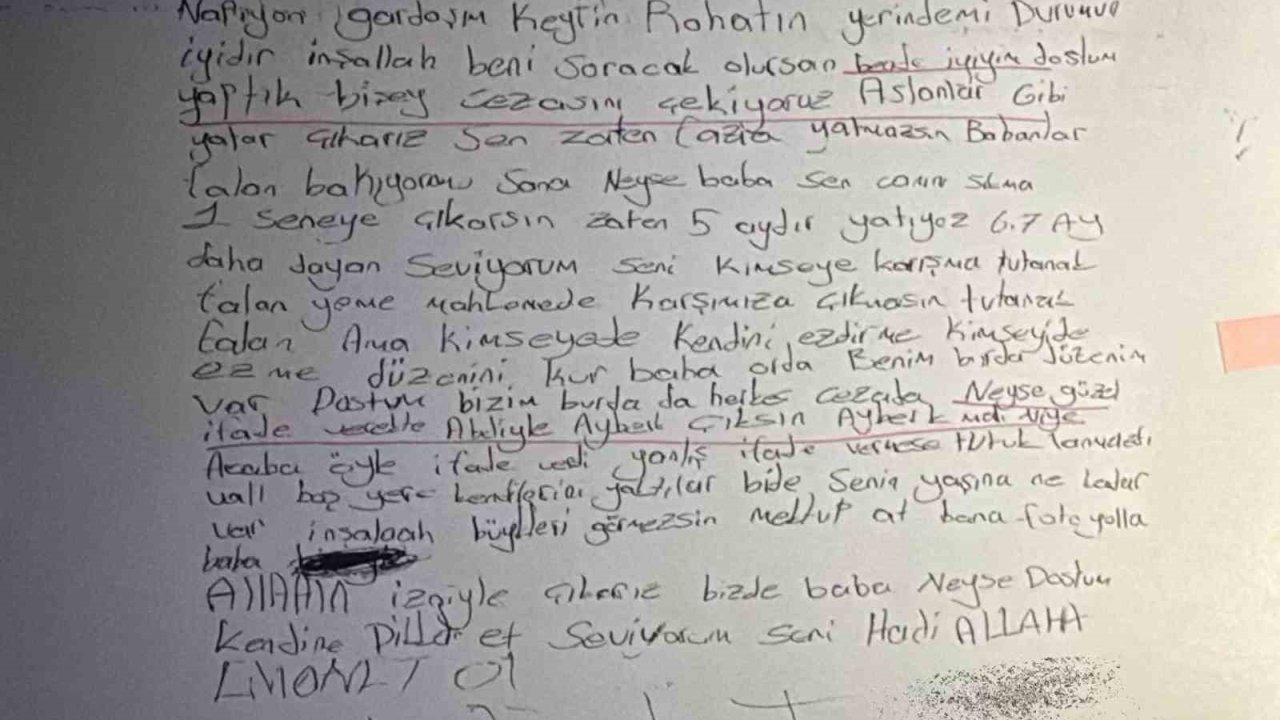 Napıyon gardaşım Keyfin Rohatın yerindemi Durumun
iyidir inşallah beni soracak olursan bende iyiyim dostum
yaptık bizey cezasını çekiyoruz Aslanlar Gibi
yatar çıkarız Sen zaten fazla yatmazsın Babanlar
falan bakıyorm Sana Neyse baba sen canın sıkma
1 seneye çıkarsın zaten 5 aydır yatıyoz 6.7 AY
daha dayan Seviyorum seni kimseye karışma tutanak
falan yeme mahkemede karşımıza çıkmasın tutanak
falan Ama kimseyede kendini ezdirme kimseyide
ezme düzenini kur baba orda Benim burda düzenim
var Dostum bizim burda da herkes cezada Neyse güzel
ifade Abiliyle Ayberk çıksın Ayberk niye
Acaba öyle ifade verdi yanlış ifade vermese tutuk
boş yere yattılar bide Senin yaşına ne kadar
var inşalaah büyükleri görmezsin mektup at bana foto yolla
baba
AllAHIN izniyle çıkarız bizde baba Neyse Dostum
kendine Dikkat et Seviyorum seni Hadi ALLAHA
EMANET Ol